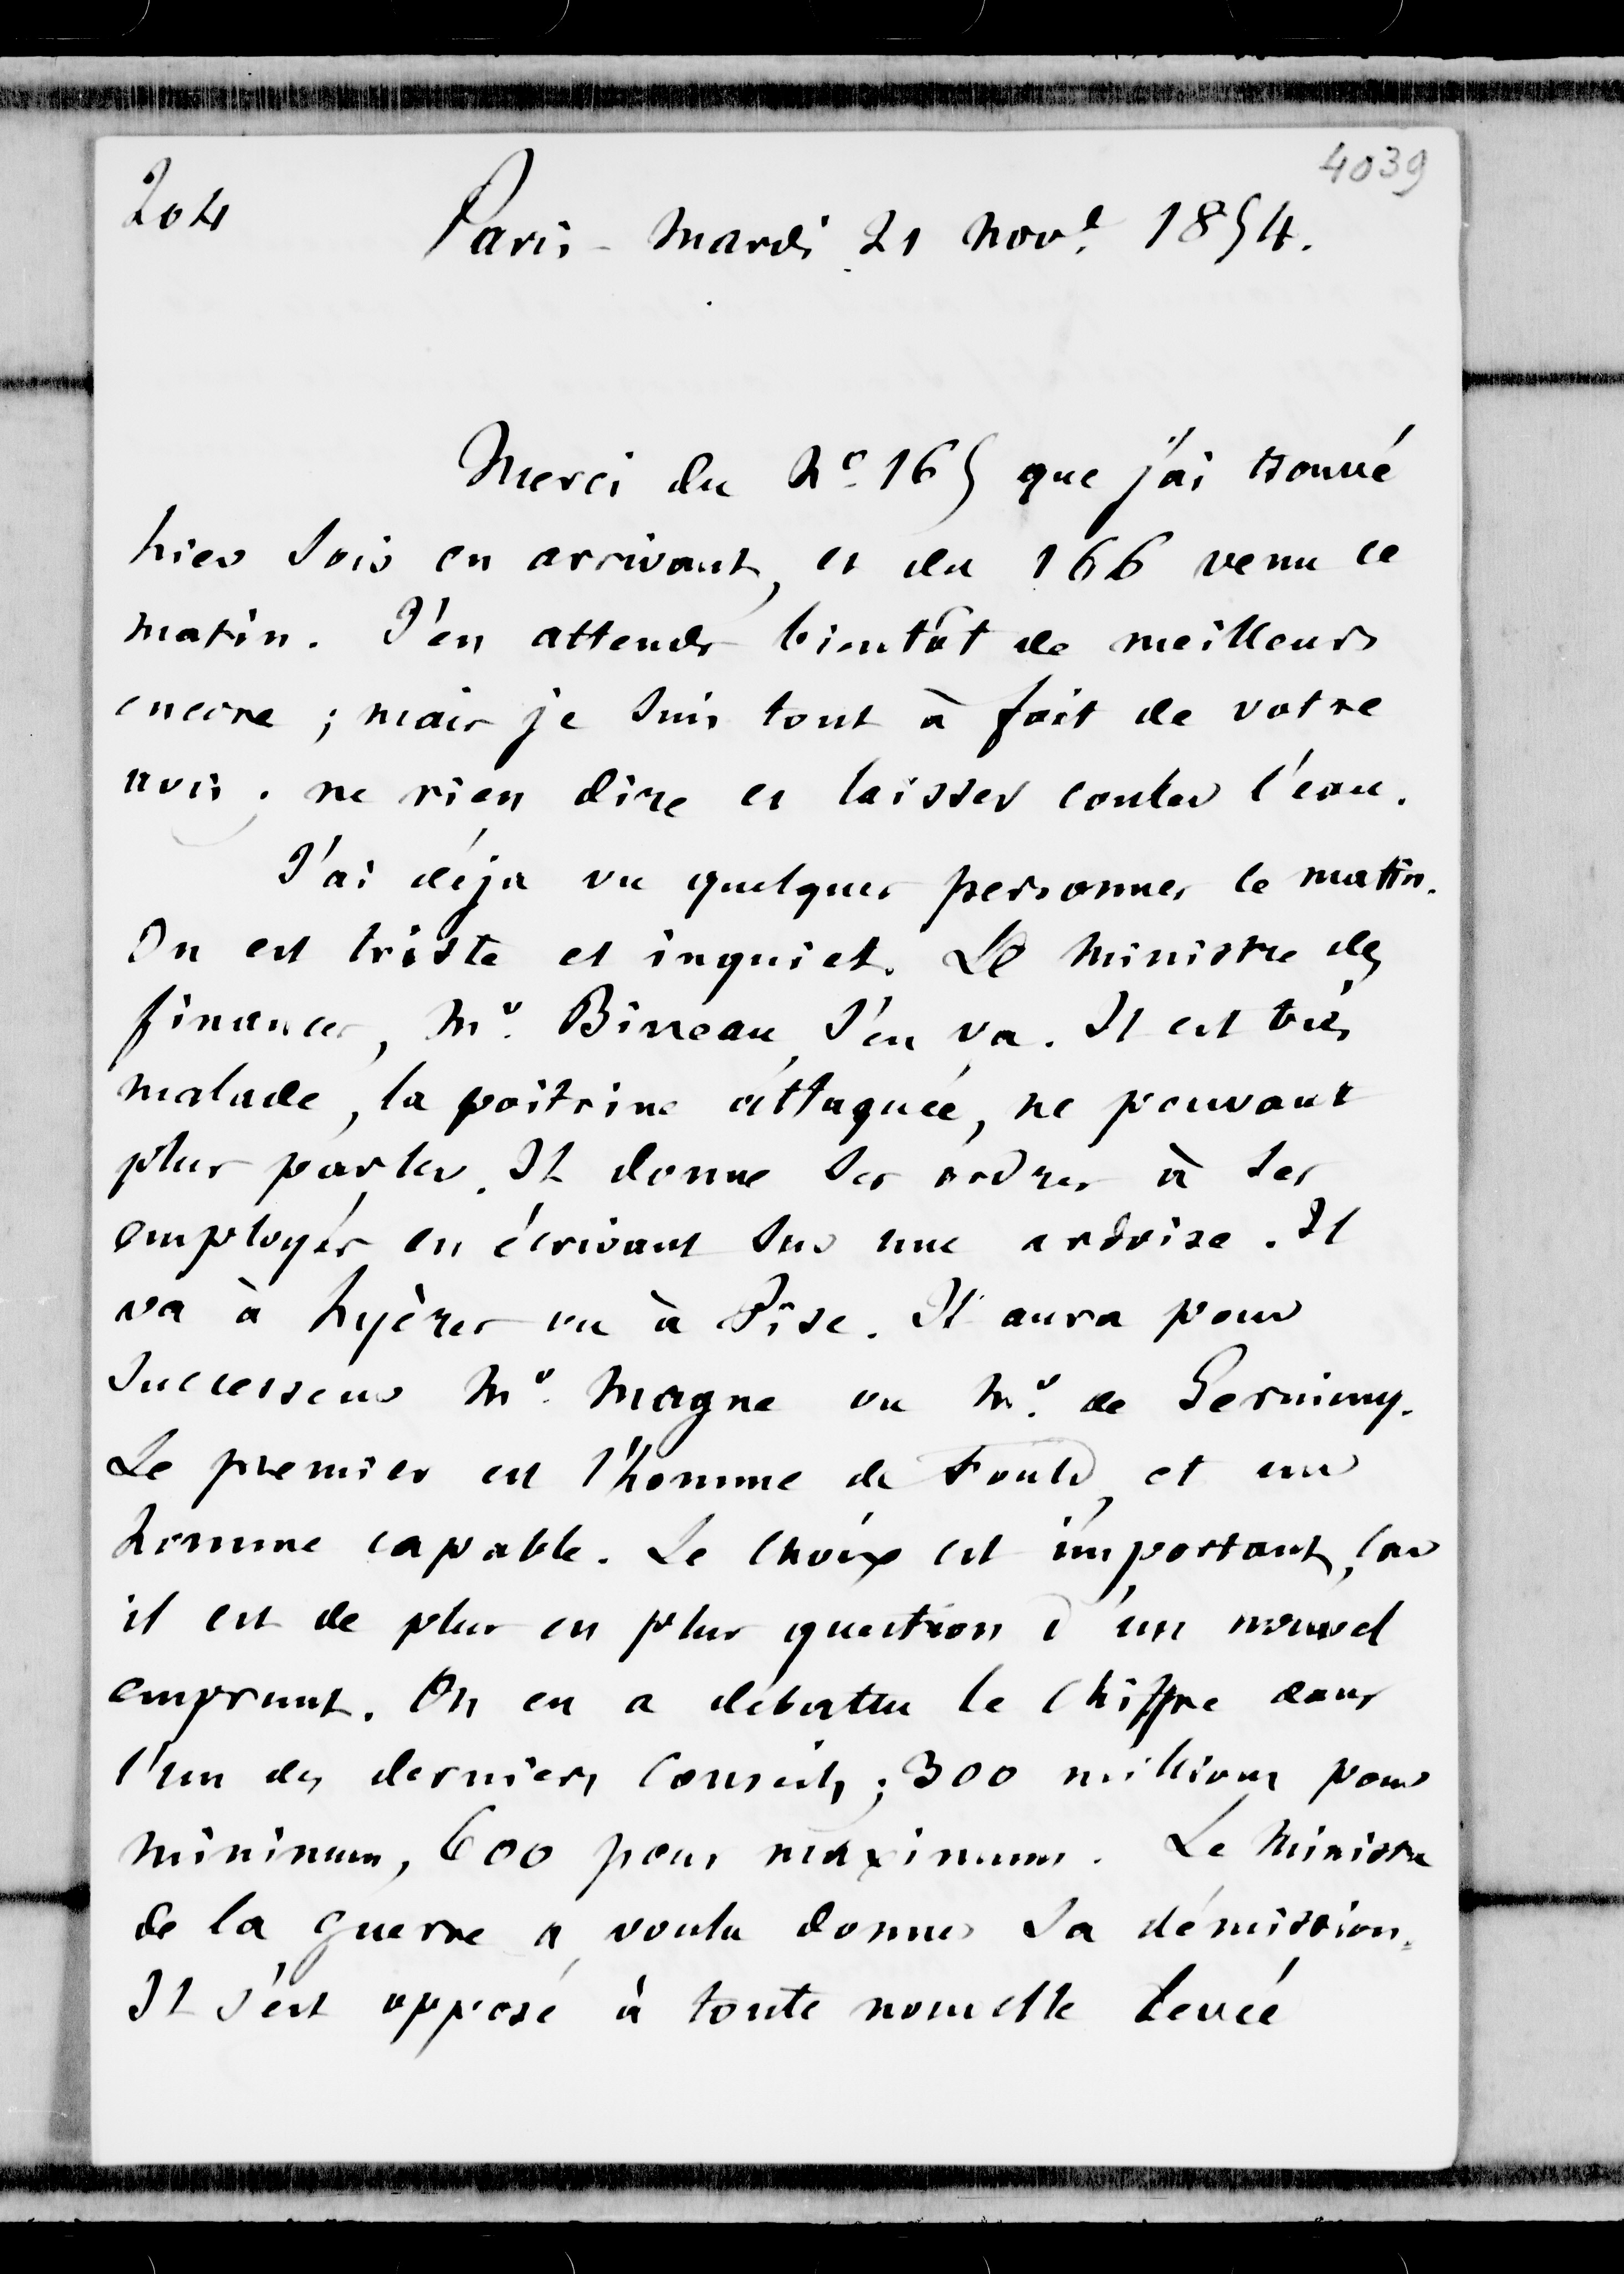 4039
204
Paris - Mardi 21 Nov.e 1854.
Merci du No 165 que j'ai trouvé
hier soir en arrivant, et du 166 venu ce
matin. J'en attends bientôt de meilleurs
encore ; mais je suis tout à fait de votre
avis ; ne rien dire et laisser couler l'eau.
J'ai déja vu quelques personnes ce matin.
On est triste et inquiet. Le Ministre des
finances, Mr. Bineau, s'en va. Il est très
malade, la poitrine attaquée, ne pouvant
plus parler. Il donne ses ordres à ses
employés en écrivant sur une ardoise. Il
va à hyères ou à Pise. Il aura pour
successeur Mr. Magne ou Mr. de Germiny.
Le premier est l'homme de Fould, et un
homme capable. Le choix est important, car
il est de plus en plus question d'un nouvel
emprunt. On en a débattu le chiffre dans
l'un des derniers Conseils ; 300 millions pour
minimum, 600 pour maximum. Le Ministre
de la guerre a voulu donner sa démission.
Il s'est opposé à toute nouvelle levée